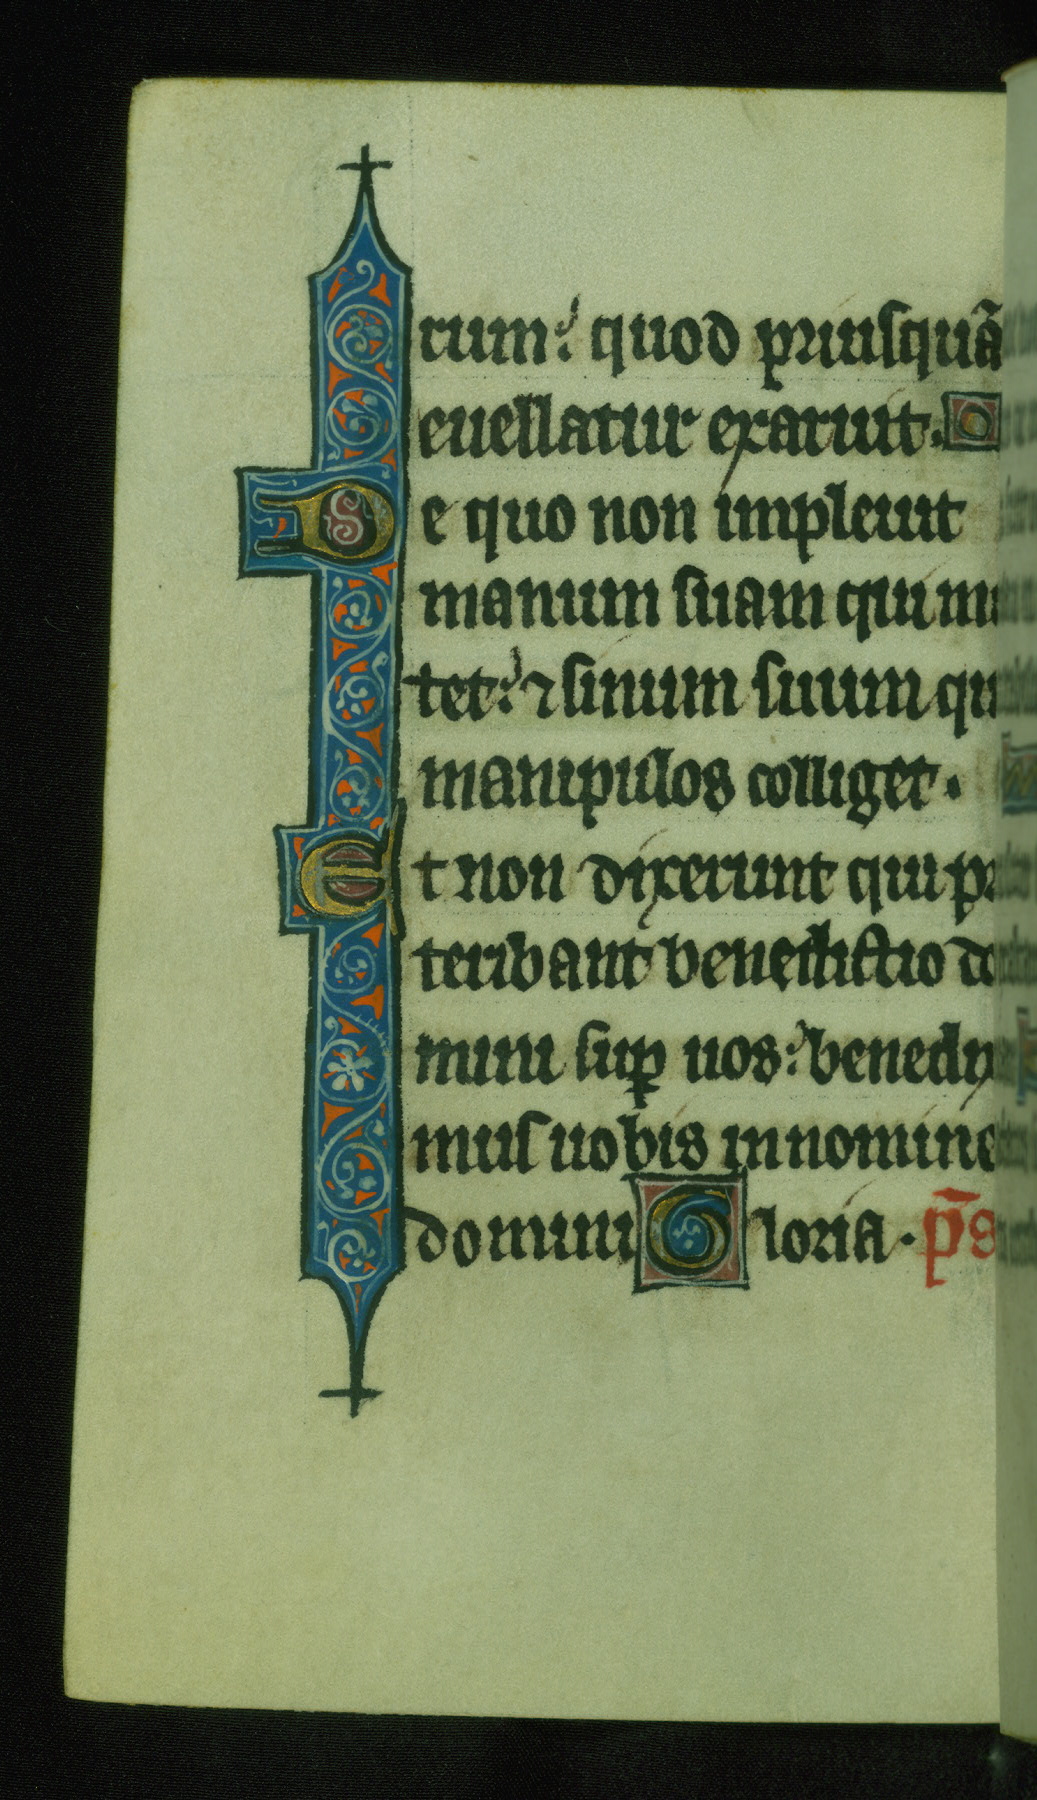 rum: quod priusquā
euellatur exaruit.
De quo non impleuit
manum suam qui me
tet: ⁊ sinum suum qui
manipulos colliget.
Et non dixerunt qui pre
teribant benedictio do
mini sup uos: benedixi
mus uobis in nomine
domini Gloria. ps